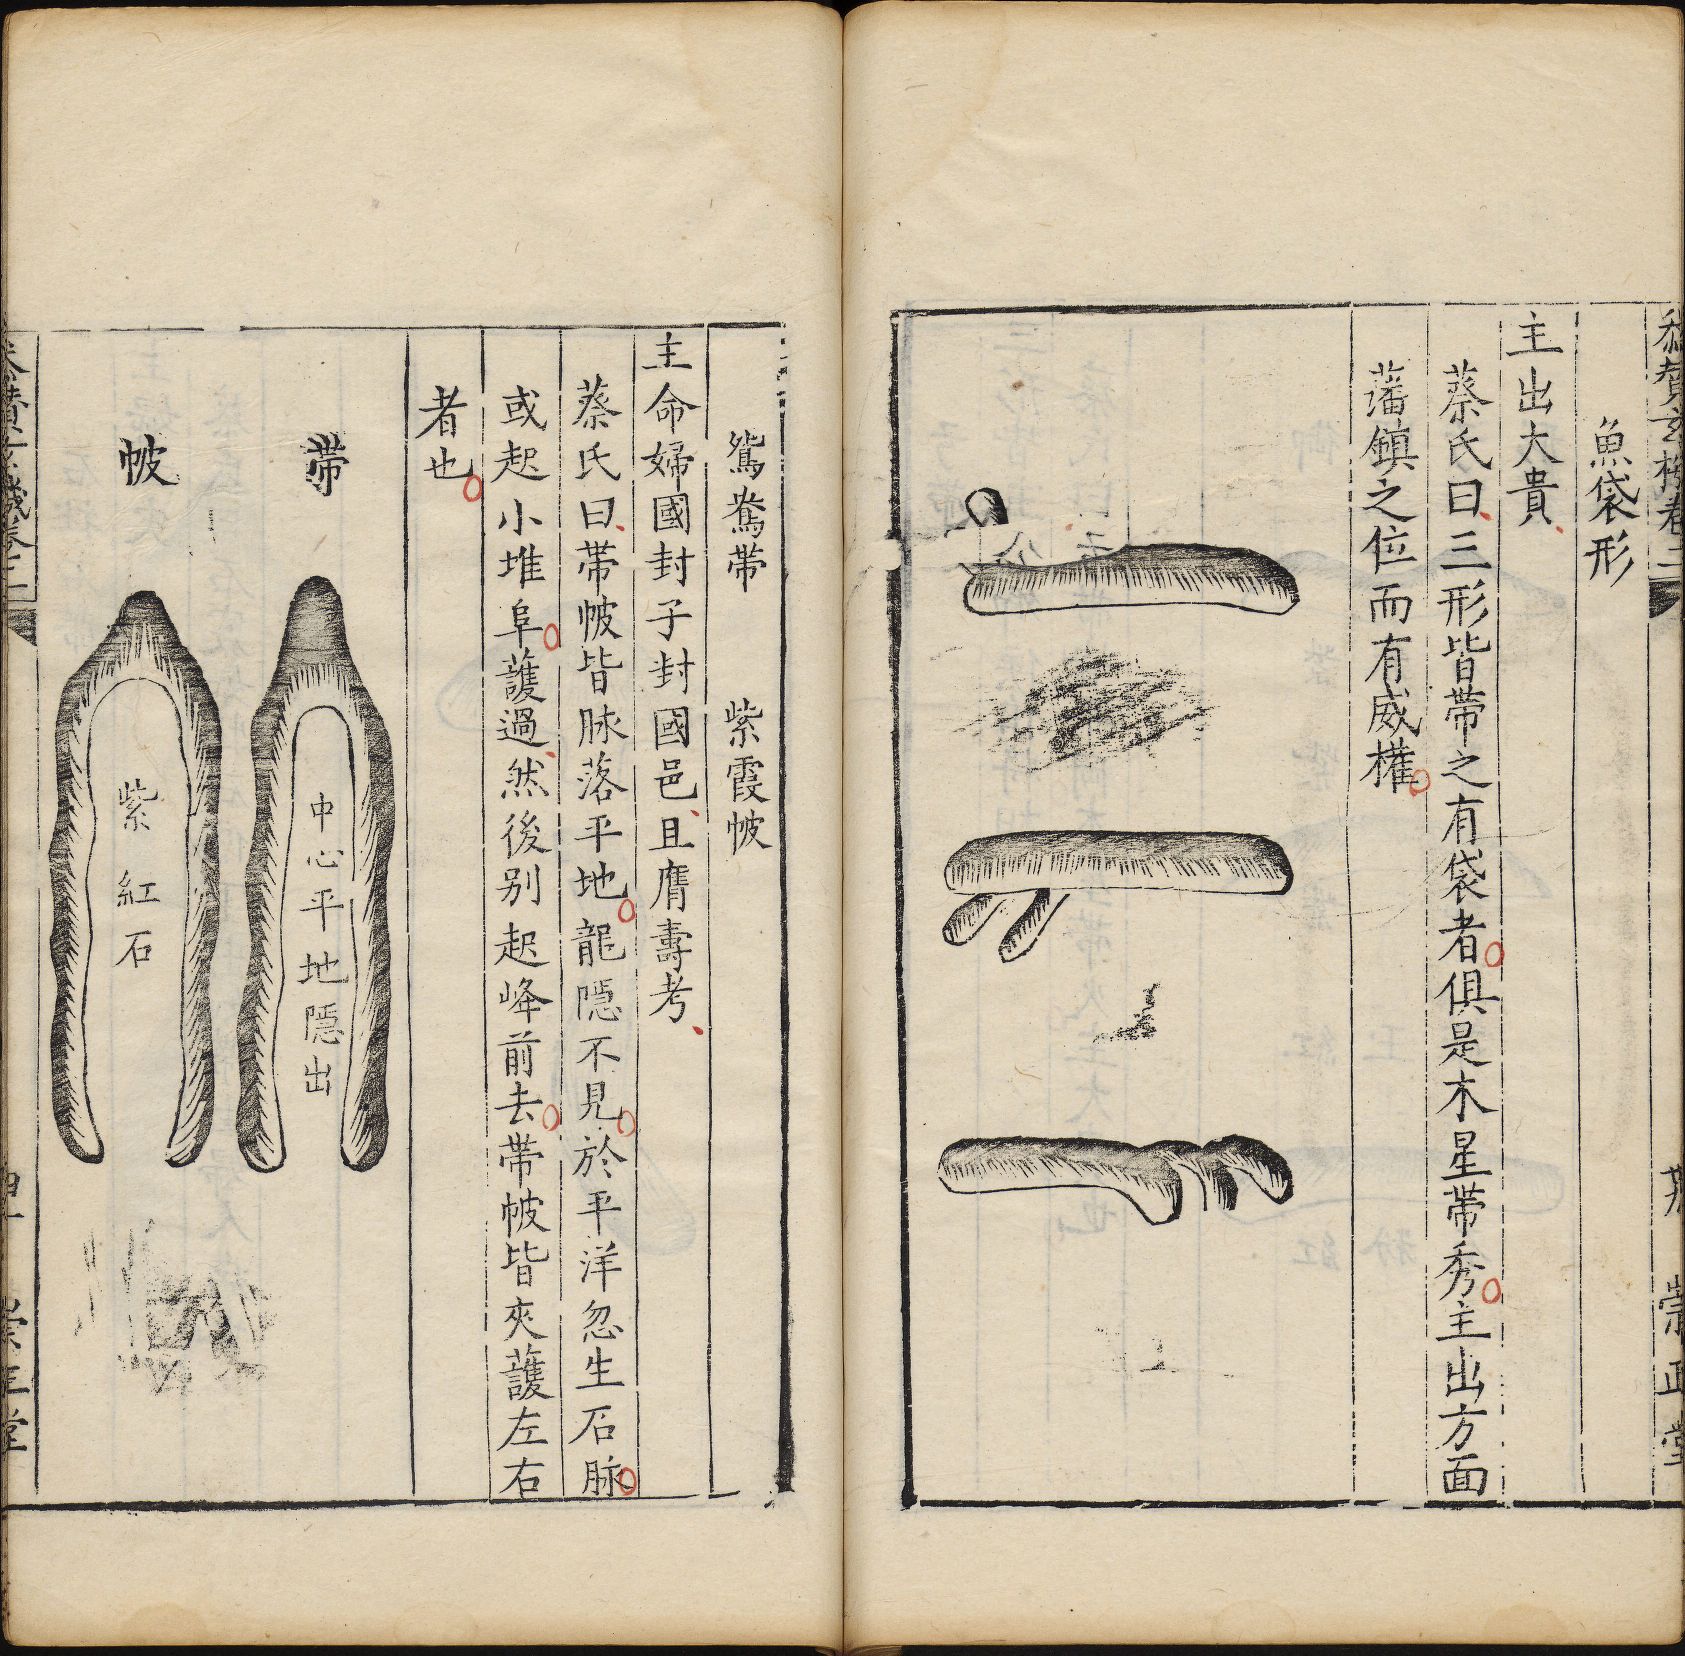 魚袋形
主出大貴
蔡氏曰三形皆帶之有袋者俱是木星帶秀主出方面
藩鎮之位而有威權
鴛鴦帶　紫霞帔
主命婦國封子封國邑且膺壽考
蔡氏曰帶帔皆脉落平地龍隱不見於平洋忽生石脉
或起小堆阜護過然後别起峰前去帶帔皆夾護左右
者也
帶
中心平地隱出
帔
紫紅石
崇正堂